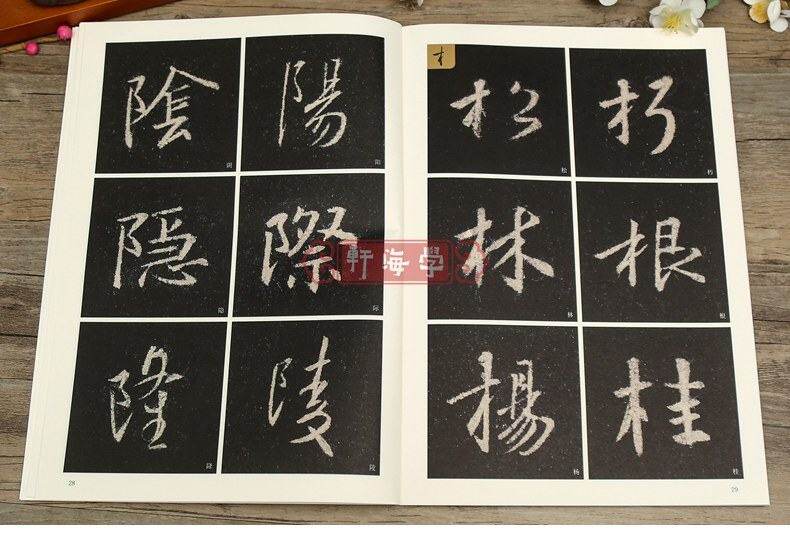 陰 陽
阴 阳
隱 際
隐 际
隆 陵
隆 陵
28
木
松 朽
松 朽
林 根
林 根
楊 桂
杨 桂
29
學海軒